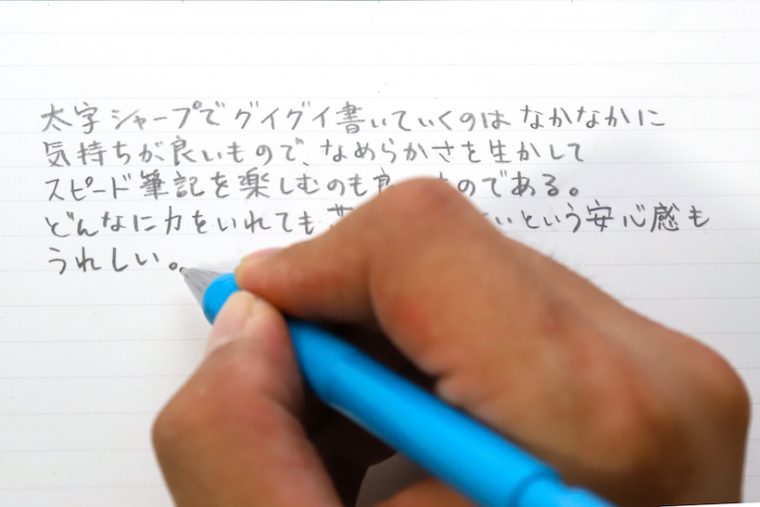 太字シャープでグイグイ書いていくのはなかなかに
気持ちが良いもので、なめらかさを生かして
スピード筆記を楽しむのものである。
どんなに力をいれてもいという安心感も
うれしい。